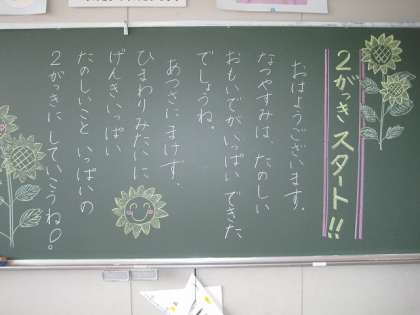 2がっき スタート!!
おはようございます。
なつやすみは、たのしい
おもいでが いっぱい できた
でしょうね。
あつさに まけず、
ひまわり みたいに
げんき いっぱい
たのしいこと いっぱいの
2がっきに していこうね。